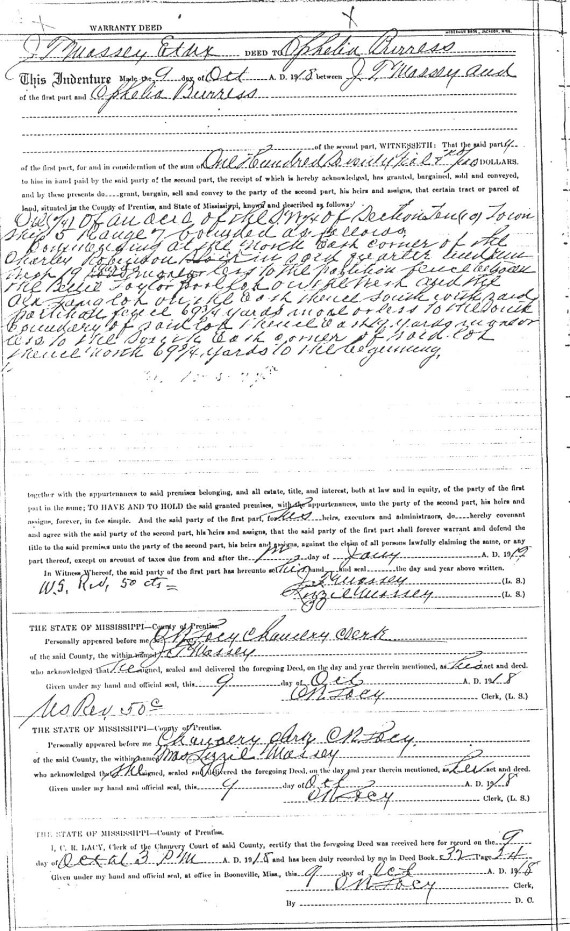 WARRANTY DEED
J. T. Massey Etux DEED TO Ophelia Burress
This Indenture Made the 9 day of Oct A. D. 1918 between J. T. Massey and
of the first part and Ophelia Burress
of the second part, WITNESSETH: That the said party
of the first part, for and in consideration of the sum of One Hundred Seventy five & no/100 DOLLARS.
to him in hand paid by the said party of the second part, the receipt of which is hereby acknowledged, has granted, bargained, sold and conveyed,
and by these presents do grant, bargain, sell and convey to the party of the second part, his heirs and assigns, that certain tract or parcel of
land, situated in the County of Prentiss, and State of Mississippi, known and described as follows:
of an acre of the of Section Town
ship 5 Range 7 bounded as follows
Commencing at the North East corner of the
Charley Robinson in said quarter and run
West 19 more or less to the partition fence
the Belle Taylor on the West and the
Old lot on the East thence South with said
partition fence 69 3/4 yards more or less to the South
boundery of said lot thence East yards more or
less to the South East corner of said lot
thence north 69 3/4 yards to the beginning
together with the appurtenances to said premises belonging, and all estate, title, and interest, both at law and in equity, of the party of the first
part in the same; TO HAVE AND TO HOLD the said granted premises, with the appurtenances, unto the party of the second part, his heirs and
assigns, forever, in fee simple. And the said party of the first part, for his heirs, executors and administrators, do hereby covenant
and agree with the said party of the second part, his heirs and assigns, that the said party of the first part shall forever warrant and defend the
title to the said premises unto the party of the second part, his heirs and assigns, against the claim of all persons lawfully claiming the same, or any
part thereof, except on account of taxes due from and after the day of Jany A. D. 1919
In Witness Whereof, the said party of the first part has hereunto set his hand and seal the day and year above written.
U.S. Rev, 50 cts = J T Massey (L. S.)
Lizzie Massey (L. S.)
THE STATE OF MISSISSIPPI—County of Prentiss.
Personally appeared before me C R Lacy Chancery Clerk
of the said County, the within named J. T. Massey
who acknowledged that he signed, sealed and delivered the foregoing Deed, on the day and year therein mentioned, as his act and deed.
Given under my hand and official seal, this 9 day of Oct A. D. 1918
C R Lacy Clerk, (L. S.)
US Rev. 50c
THE STATE OF MISSISSIPPI—County of Prentiss.
Personally appeared before me Chancery clerk C R Lacy
of the said County, the within named Mrs Lizzie Massey
who acknowledged that she signed, sealed and delivered the foregoing Deed, on the day and year therein mentioned, as her act and deed.
Given under my hand and official seal, this 9 day of Oct A. D. 1918
C R Lacy Clerk, (L. S.)
THE STATE OF MISSISSIPPI—County of Prentiss.
I, C. R. LACY, Clerk of the Chancery Court of said County, certify that the foregoing Deed was received here for record on the 9
day of Oct at 3 P M A. D. 1918 and has been duly recorded by me in Deed Book 32 Page 24
Given under my hand and official seal, at office in Booneville, Miss., this 9 day of Oct A. D. 1918
C R Lacy Clerk,
By D. C.